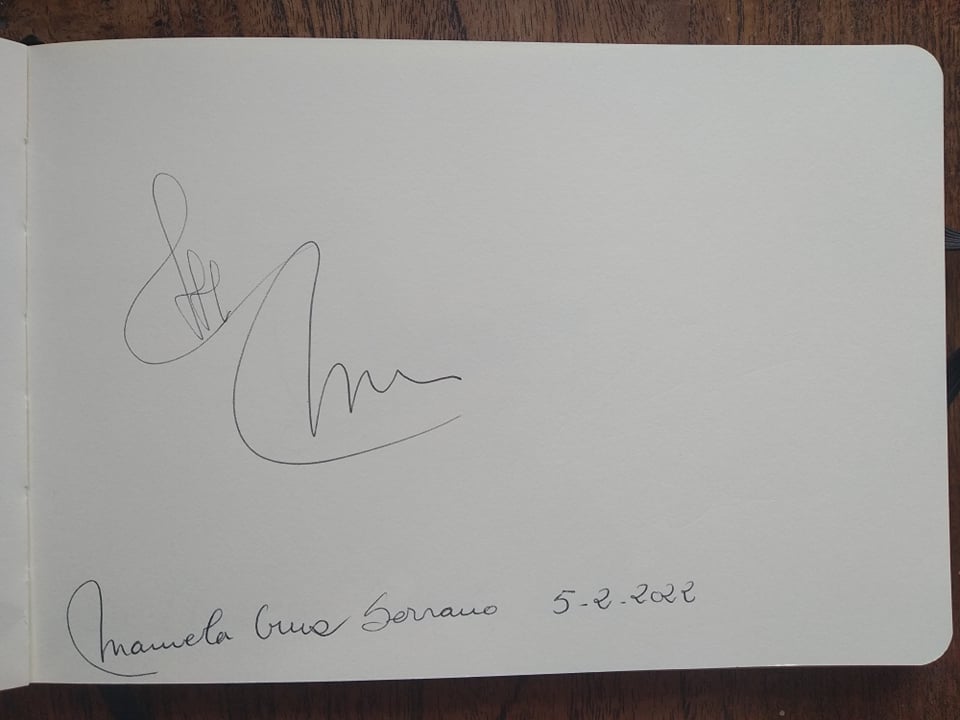 Manuela Cruz Serrano 5-2-2022